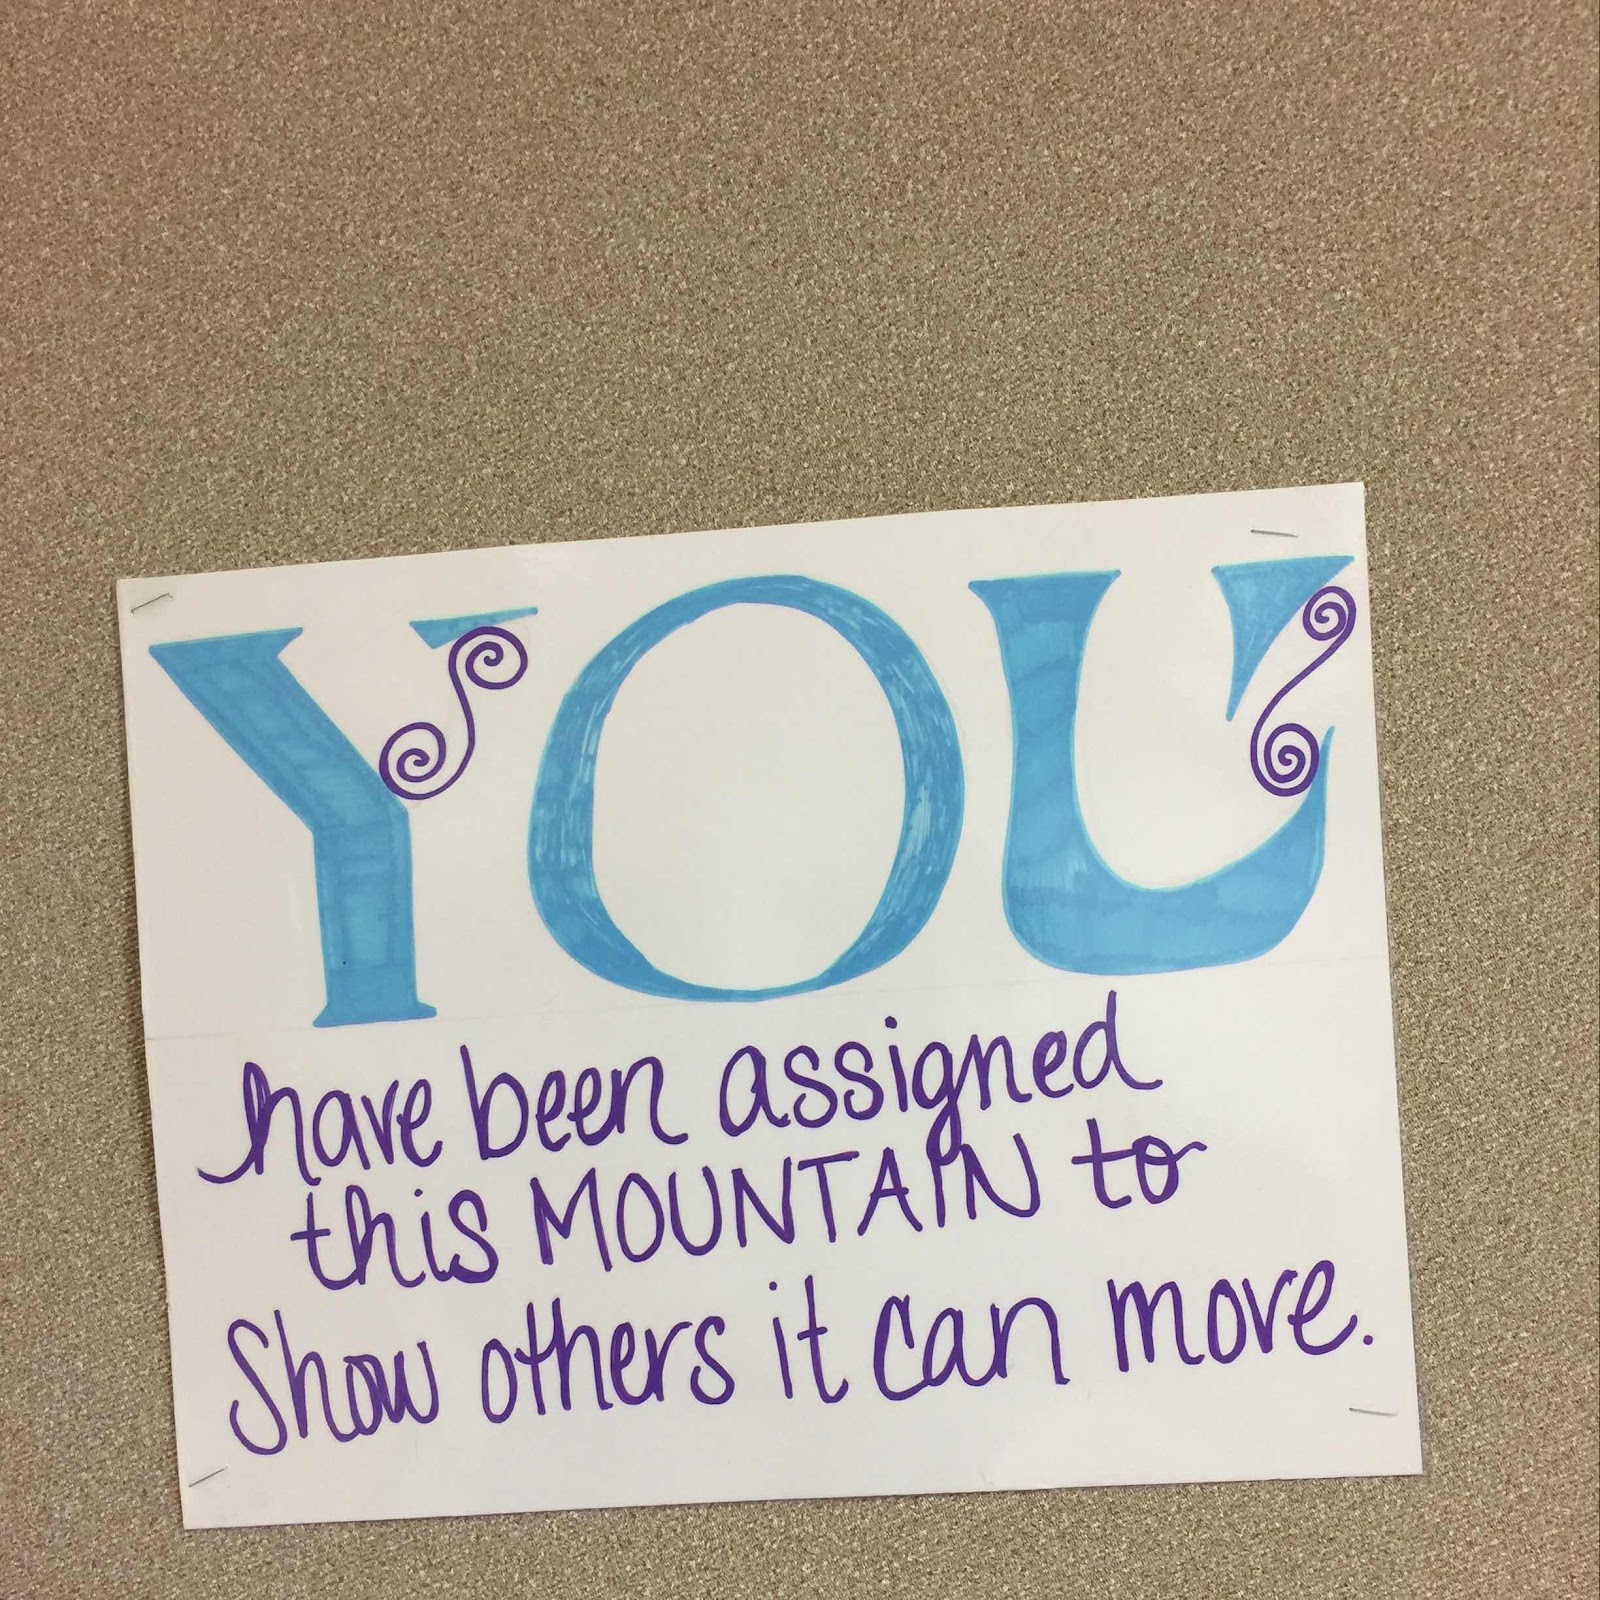 YOU
have been assigned
this MOUNTAIN to
Show others it can move.